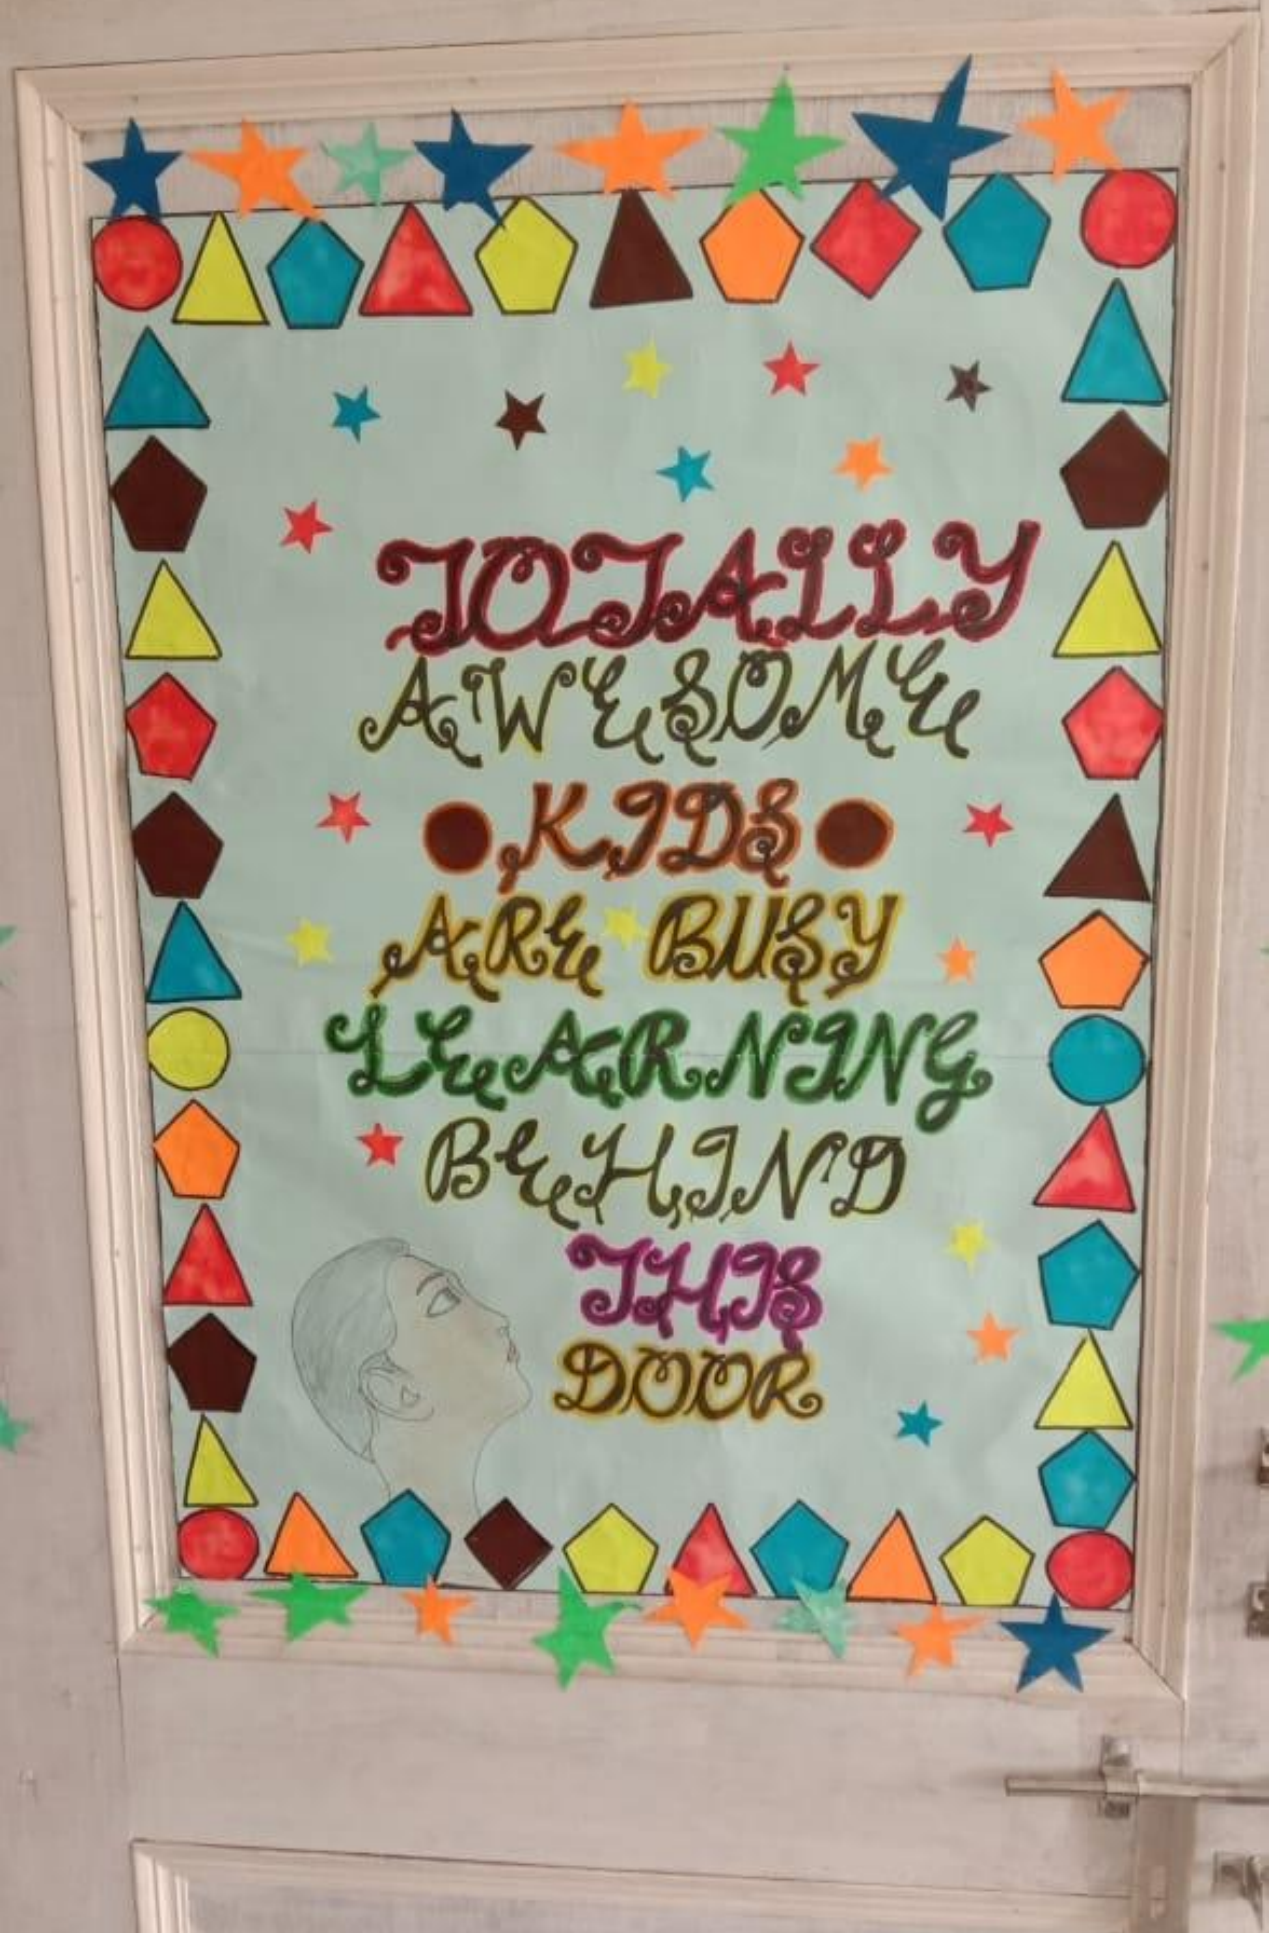 TOTALLY
AWESOME
KIDS
ARE BUSY
LEARNING
BEHIND
THIS
DOOR